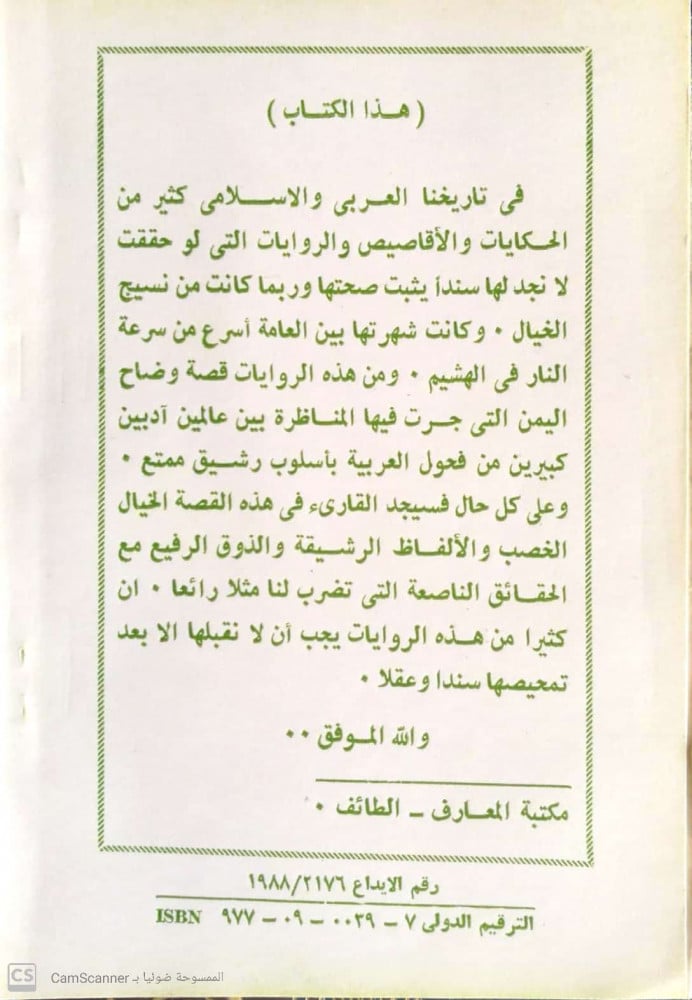 ( هـذا الكتـاب )
فى تاريخنا العـربى والاسـلامى كثير من
الحـكايات والأقاصيص والروايات التى لو حققت
لا نجد لها سنداً يثبت صحتها وربما كانت من نسيج
الخيال ٠ وكانت شهرتها بين العامة أسرع من سرعة
النار فى الهشيم ٠ ومن هذه الروايات قصة وضاح
اليمن التى جـرت فيها المناظرة بين عالمين آدبين
كبيرين من فحول العربية بأسلوب رشـيق ممتع ٠
وعلى كل حال فسيجد القارىء فى هذه القصة الخيال
الخصب والألفـاظ الرشـيقة والذوق الرفيع مع
الحقـائق الناصعة التى تضرب لنا مثلا رائعا ٠ ان
كثيرا من هـذه الروايات يجب أن لا نقبلها الا بعد
تمحيصها سندا وعقلا ٠
والله المـوفق ٠٠
مكتبة المعـارف ـ الطائف ٠
رقم الايداع ١٩٨٨/٢١٧٦
الترقيم الدولى ٧ - ٠٠٣٩ - ٠٩ - ٩٧٧ ISBN
CS CamScanner الممسوحة ضوئيا بـ